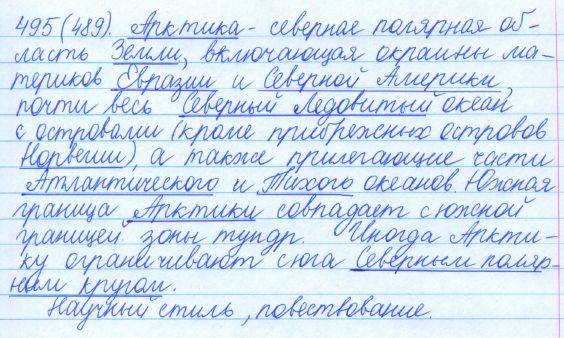 495(489). Арктика - северная полярная об-
ласть Земли, включающая окраины ма-
териков Евразии и Северной Америки,
почти весь Северный Ледовитый океан
с островами (кроме прибрежных островов
Норвегии), а также прилегающие части
Атлантического и Тихого океанов. Южная
граница Арктики совпадает с южной
границей зоны тундр. Иногда Аркти-
ку ограничивают с юга Северным поляр-
ным кругом.
Научный стиль, повествование.